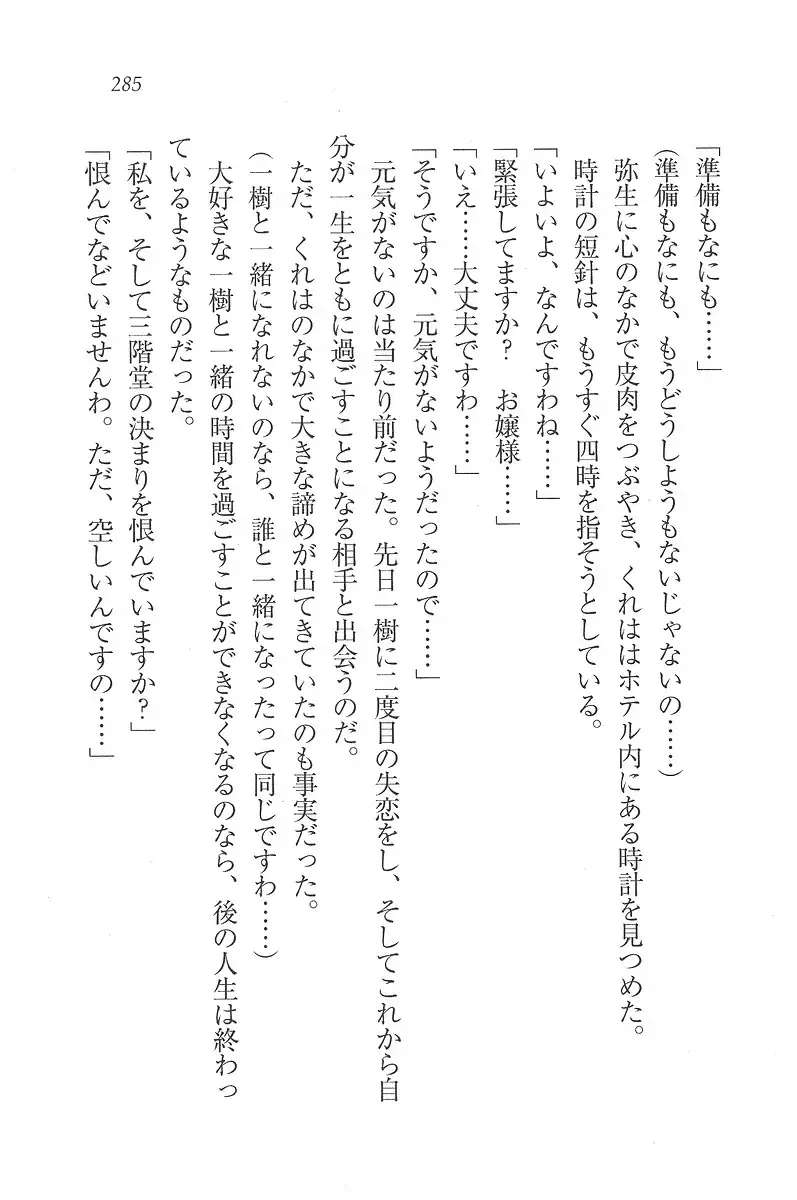 285
「準備もなにも……」
(準備もなにも、もうどうしようもないじゃないの……)
弥生に心のなかで皮肉をつぶやき、くれははホテル内にある時計を見つめた。
時計の短針は、もうすぐ四時を指そうとしている。
「いよいよ、なんですわね……」
「緊張してますか？　お嬢様……」
「いえ……大丈夫ですわ……」
「そうですか、元気がないようだったので……」
元気がないのは当たり前だった。先日一樹に二度目の失恋をし、そしてこれから自
分が一生をともに過ごすことになる相手と出会うのだ。
ただ、くれはのなかで大きな諦めが出てきていたのも事実だった。
(一樹と一緒になれないのなら、誰と一緒になったって同じですわ……)
大好きな一樹と一緒の時間を過ごすことができなくなるのなら、後の人生は終わっ
ているようなものだった。
「私を、そして三階堂の決まりを恨んでいますか？」
「恨んでなどいませんわ。ただ、空しいんですの……」